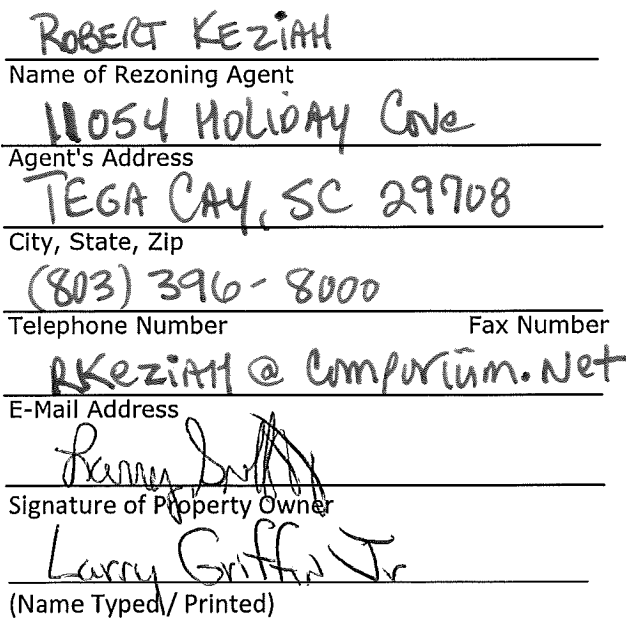 ROBERT KEZIAH
Name of Rezoning Agent
11054 HOLIDAY Cove
Agent's Address
TEGA CAY, SC 29708
City, State, Zip
(803) 396-8000
Telephone Number Fax Number
RKeziAH @ Comporium.Net
E-Mail Address
Larry
Signature of Property Owner
Larry Griffin Jr
(Name Typed / Printed)